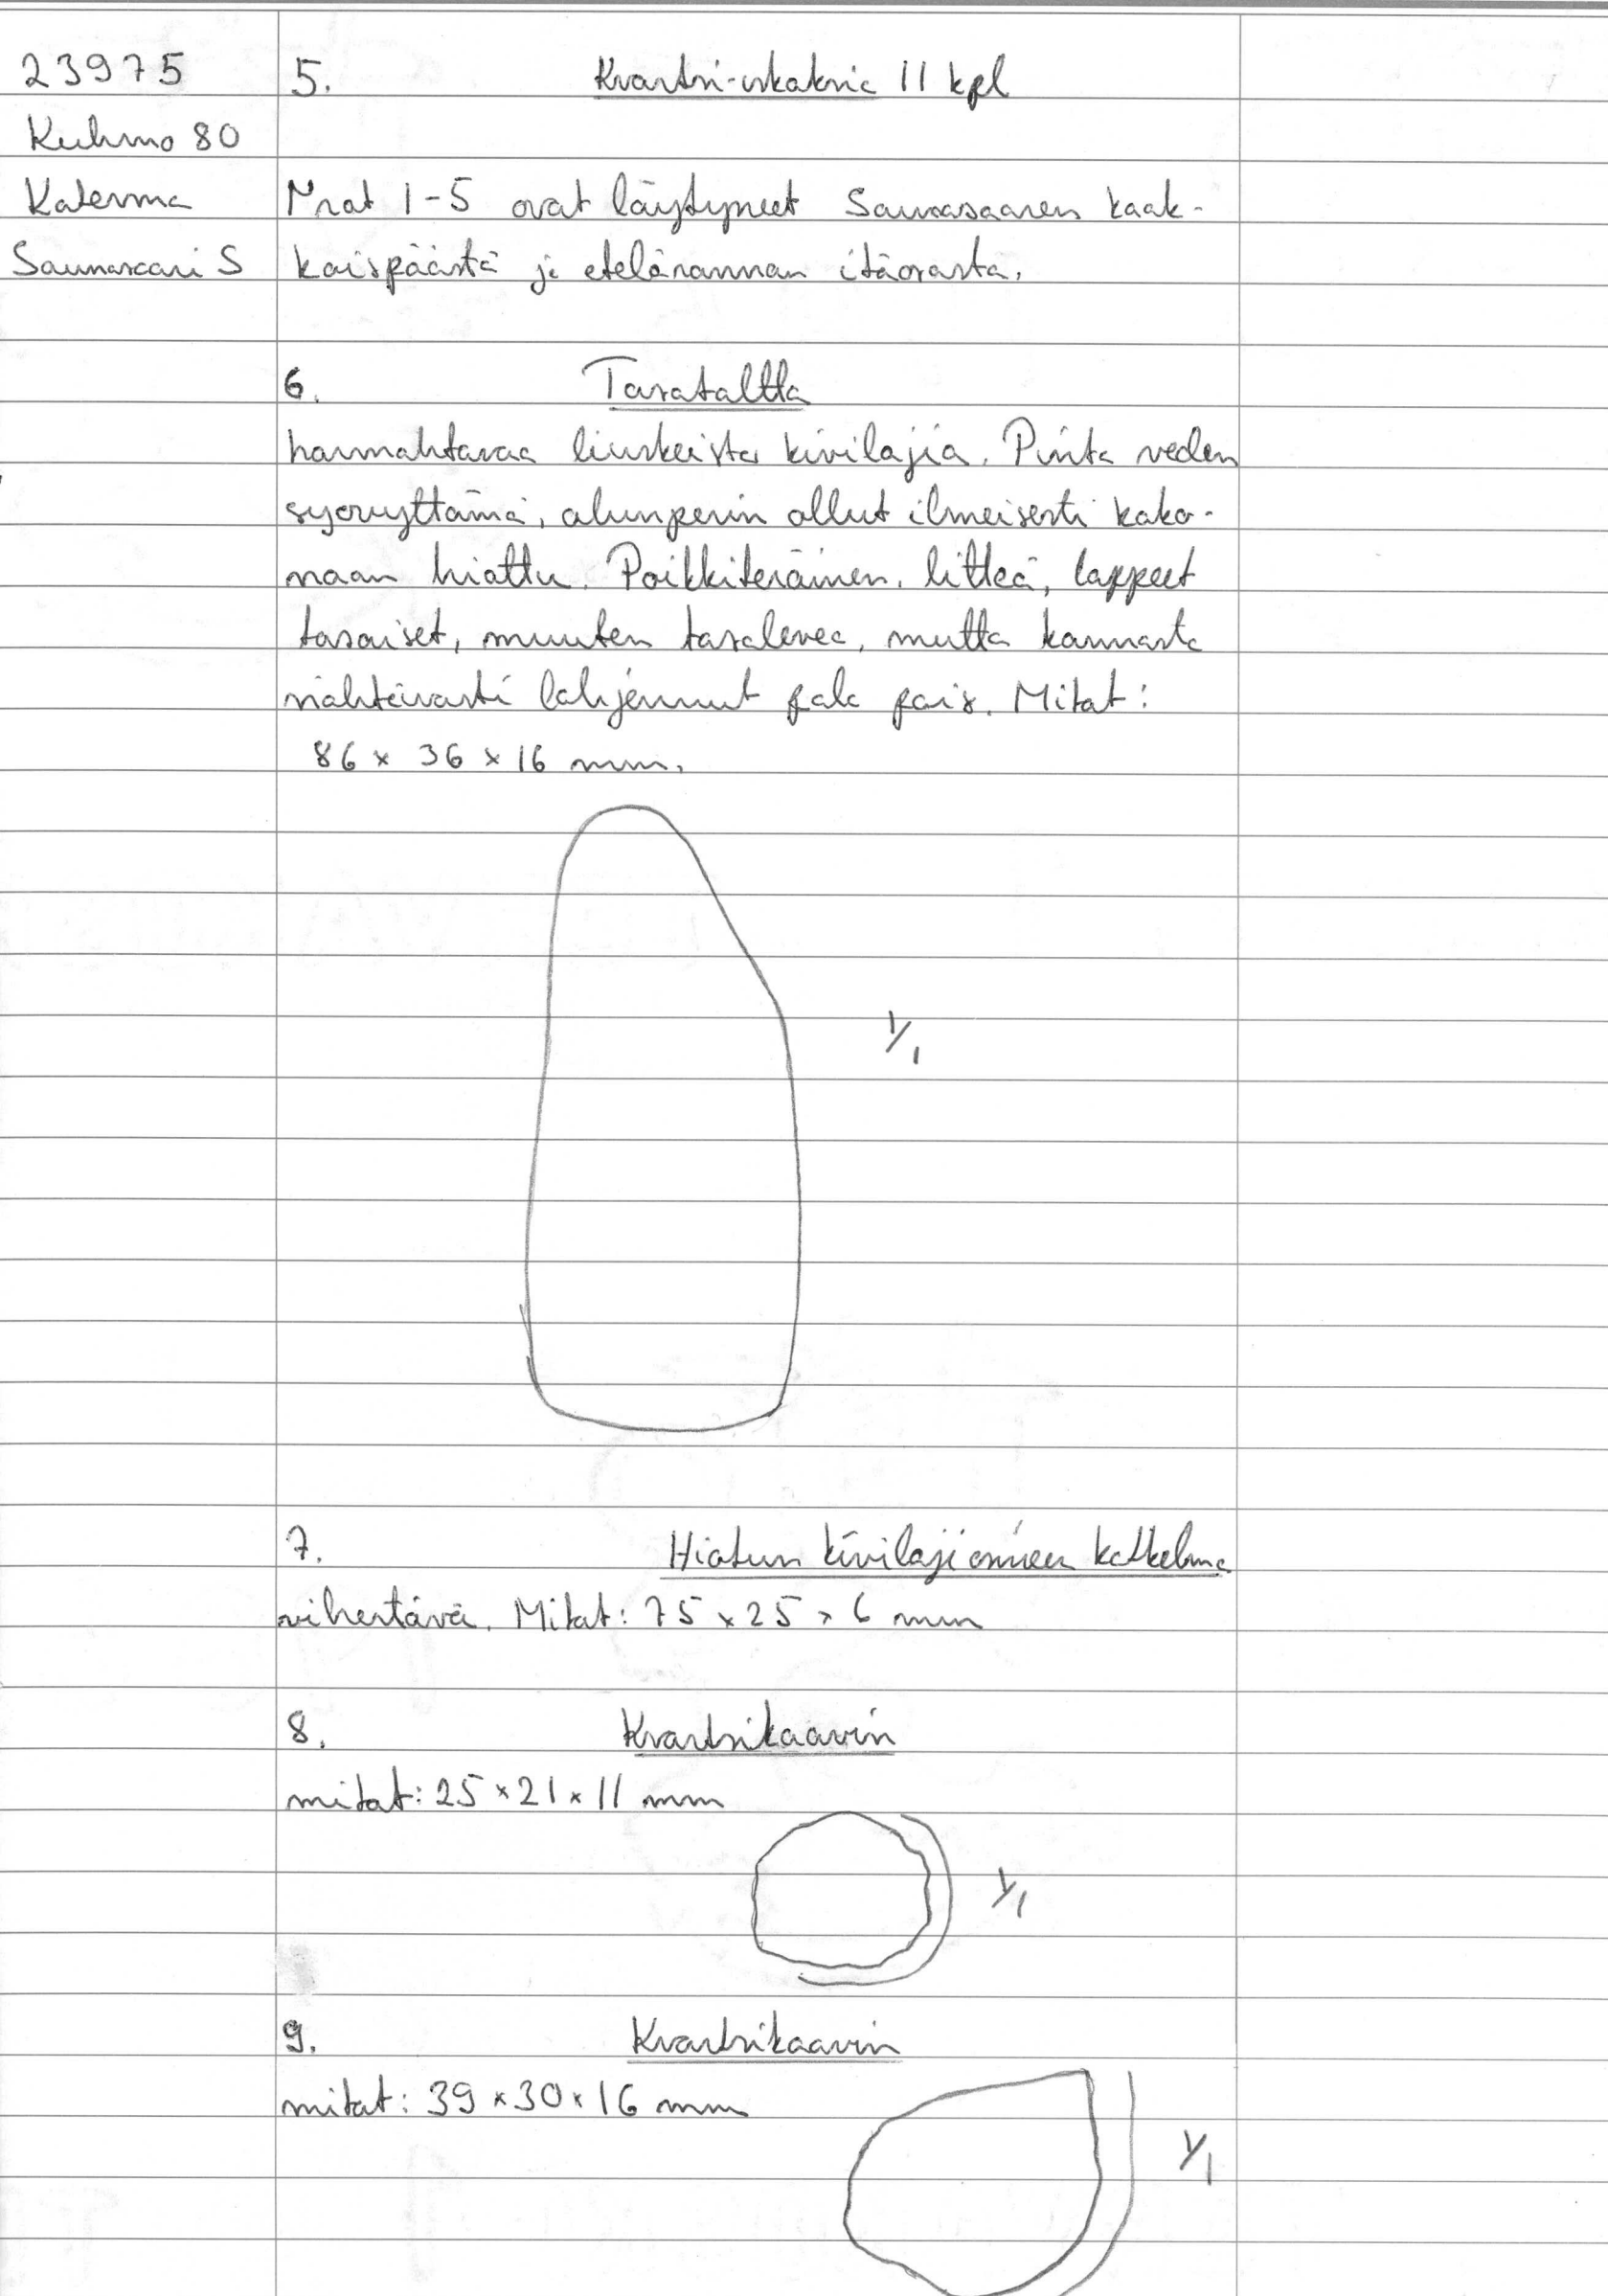 23975
Kuhmo 80
Katerma
Saunasaari S
5. Kvartsi-iskoksia 11 kpl
Nrot 1-5 ovat löytyneet Saunasaaren kaak-
koispäästä ja etelärannan itäosasta.
6. Tasataltta
harmahtavaa liuskeista kivilajia. Pinta veden
syövyttämä, alunperin ollut ilmeisesti koko-
naan hiottu. Poikkiteräinen, litteä, lappeet
tasaiset, muuten tasalevea, mutta kannasta
nähtävästi lohjennut pala pois. Mitat:
86 x 36 x 16 mm.
1/1
7. Hiotun kivilajiesineen katkelma
vihertävä. Mitat: 75 x 25 x 6 mm
8. Kvartsikaavin
mitat: 25 x 21 x 11 mm
1/1
9. Kvartsikaavin
mitat: 39 x 30 x 16 mm
1/1